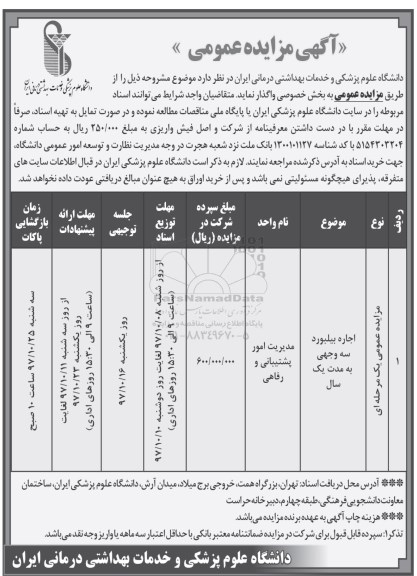 «آگهی مزایده عمومی»
دانشگاه علوم پزشکی و خدمات بهداشتی درمانی ایران
دانشگاه علوم پزشکی و خدمات بهداشتی درمانی ایران در نظر دارد موضوع مشروحه ذیل را از
طریق مزایده عمومی به بخش خصوصی واگذار نماید. متقاضیان واجد شرایط می‌توانند اسناد
مربوطه را در سایت دانشگاه علوم پزشکی ایران یا پایگاه ملی مناقصات مطالعه نموده و در صورت تمایل به تهیه اسناد، صرفاً
در مهلت مقرر با در دست داشتن معرفینامه از شرکت و اصل فیش واریزی به مبلغ ۲۵۰/۰۰۰ ریال به حساب شماره
۵۱۵۴۳۰۳۲۰۴ با کد شناسه ۱۳۰۰۱۰۱۱۲۷ بانک ملت نزد شعبه هجرت در وجه مدیریت نظارت و توسعه امور عمومی دانشگاه،
جهت خرید اسناد به آدرس ذکر شده مراجعه نمایند. لازم به ذکر است دانشگاه علوم پزشکی ایران در قبال اطلاعات سایت های
متفرقه، پذیرای هیچگونه مسئولیتی نمی باشد و پس از خرید اوراق به هیچ عنوان مبالغ دریافتی عودت داده نخواهد شد.
ردیف
نوع
موضوع
نام واحد
مبلغ سپرده شرکت در مزایده (ریال)
مهلت توزیع اسناد
جلسه توجیهی
مهلت ارائه پیشنهادات
زمان بازگشایی پاکات
۱
مزایده عمومی یک مرحله ای
اجاره بیلبورد سه وجهی به مدت یک سال
مدیریت امور پشتیبانی و رفاهی
۶۰۰/۰۰۰/۰۰۰
از روز شنبه ۹۷/۱۰/۰۸ لغایت روز دوشنبه ۹۷/۱۰/۱۰ (ساعت ۹ الی ۱۵:۳۰ روزهای اداری)
روز یکشنبه ۹۷/۱۰/۱۶
از روز سه شنبه ۹۷/۱۰/۱۱ لغایت روز یکشنبه ۹۷/۱۰/۲۳ (ساعت ۹ الی ۱۵:۳۰ روزهای اداری)
سه شنبه ۹۷/۱۰/۲۵ ساعت ۱۰ صبح
ParsNamadData
پایگاه اطلاع رسانی مناقصه و مزایده
۰۲۱-۸۸۳۴۹۶۷۰-۵
❊❊❊ آدرس محل دریافت اسناد: تهران، بزرگراه همت، خروجی برج میلاد، میدان آرش، دانشگاه علوم پزشکی ایران، ساختمان
معاونت دانشجویی فرهنگی، طبقه چهارم، دبیرخانه حراست
❊❊❊ هزینه چاپ آگهی به عهده برنده مزایده می‌باشد.
تذکر ۱: سپرده قابل قبول برای شرکت در مزایده ضمانتنامه معتبر بانکی با حداقل اعتبار سه ماهه یا واریز وجه نقد می‌باشد.
دانشگاه علوم پزشکی و خدمات بهداشتی درمانی ایران